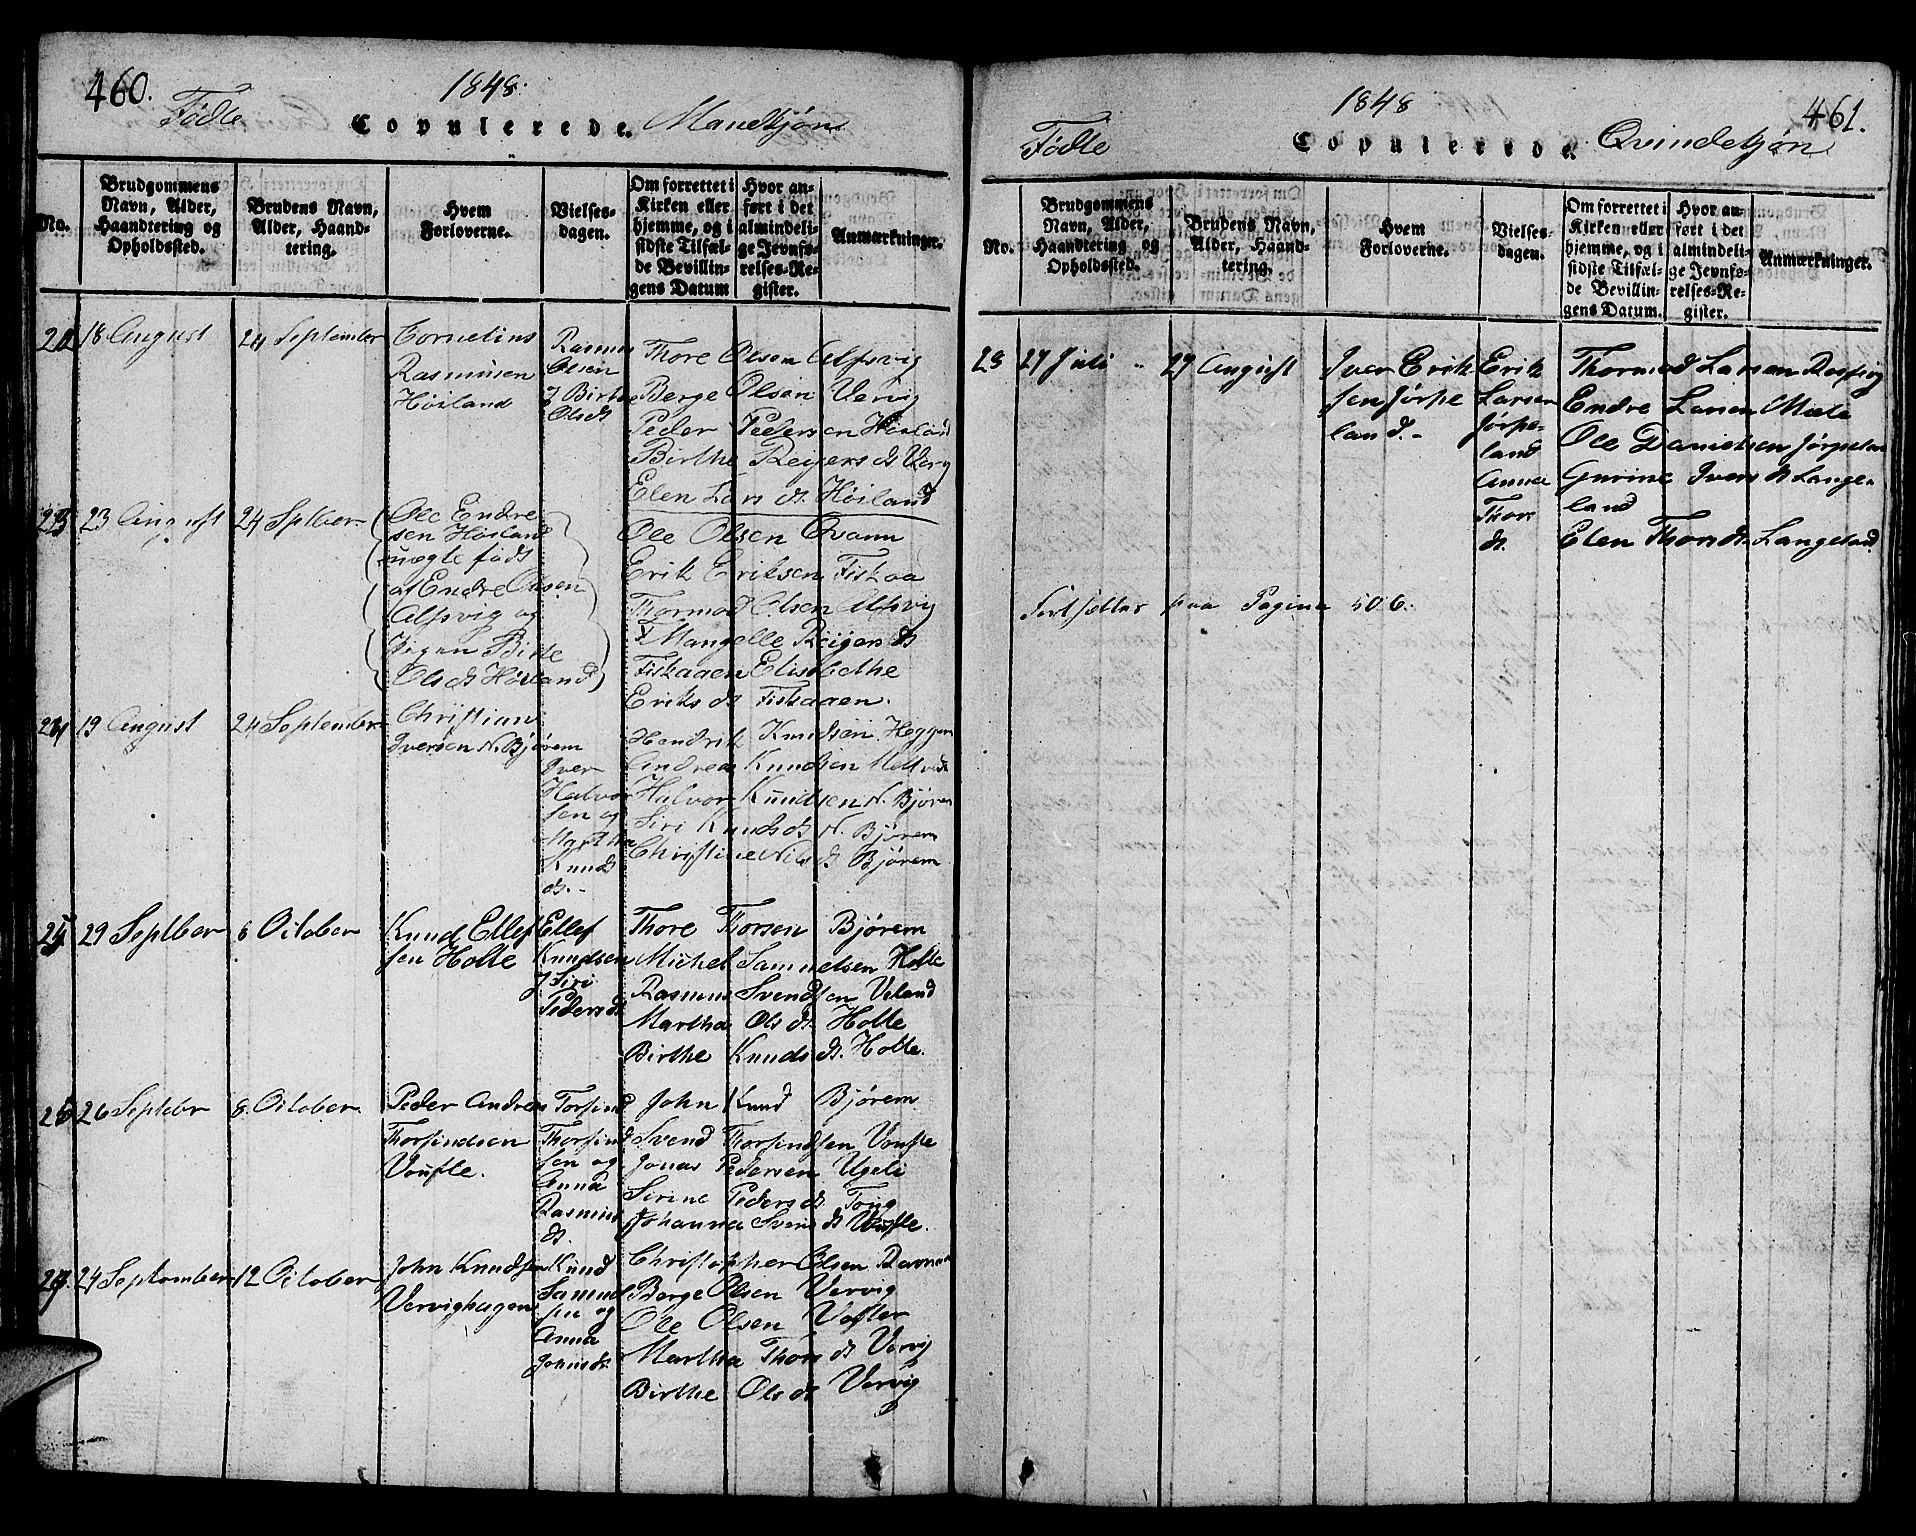 460.
1848.
Fødte
Copulerede.
Mandkjøn
No.
Brudgommens Navn, Alder, Haandtering og Opholdssted.
Brudens Navn, Alder, Haandtering.
Hvem Forloverne.
Vielsesdagen.
Om forrettet i Kirken eller hjemme, og i sidste Tilfælde Bevillingens Datum
Hvor anført i det almindelige Jevnførelses-Register.
Anmærkninger.
22 18 August
24 September
Cornelius
Rasmusen
Høiland
Rasmus
Olsen
J Birthe
Olsdt
Thore Olsen Alfsvig
Berge Olsen Vervig
Peder Pedersen Høiland
Birthe Reijers dt
Elen Lars dt Høiland
23 23 August
24 Septber
Ole Endre
sen Høiland
uægte født
af Endre Olsen
Alfsvig og
Pigen Birte
Olsdt Høiland
Ole Olsen Qvam
Erik Eriksen Fiskaa
Thormod Olsen Alfsvig
Mangelle Reijers dt
Fiskaaen Elisbethe
Eriks dt Fiskaaen.
24 19 August
24 September
Christian
Iversen N. Bjørem
Iver
Halvor
sen og
Martha
Knuds
dt.-
Hendrik Knudsen Heggem
Andreas Knudsen
Halvor Knudsen N. Bjørem
Siri Knuds dt N. Bjørem
Christine Nils dt Bjørem
25 29 Septber
8 October
Knud Ellef
sen Holte
Ellef
Knudsen
J Siri
Pedersdt
Thore Thorsen Bjørem
Michel Samuelsen Holte
Rasmus Svendsen Veland
Martha Ols dt Holte
Birthe Knuds dt. Holte.
26 26 Septebr
8. October.
Peder Andreas
Thorsindsen
Vostle.
Torfind
Thorfind
sen og
Anna
Rasmus
dt.
John Knud Bjørem
Svend Thorfindsen Vostle
Jonas Pedersen Ugeli
Sirine Peders dt Tøng
Johanna Svens dt Vostle.
27. 24 September
12 October
John Knudsen
Vervighagen
Knud
Samuel
sen og
Anna
Johnsdt
Christopher Olsen
Berge Olsen Vervig
Ole Olsen
Martha Thors dt Vervig
Birthe Ols dt Vervig
1848
461.
Fødte
Copulerede.
Qvindekjøn
No.
Brudgommens Navn, Alder, Haandtering og Opholdssted.
Brudens Navn, Alder, Haandtering.
Hvem Forloverne.
Vielsesdagen.
Om forrettet i Kirken eller hjemme, og i sidste Tilfælde Bevillingens Datum.
Hvor anført i det almindelige Jevnførelses-Register.
Anmærkninger.
23 27 Juli
27 August
Iver Erik
sen Jørpe
land.-
Erik
Larsen
Jørpe-
land
Anna
Thors
dt.
Thormod Larsen
Endre Larsen Mæle
Ole Danielsen Jørpeland
Gurine Ivers dt Lange
land
Elen Thorsdt. Langeland
Fortsættes paa Pagina 506.